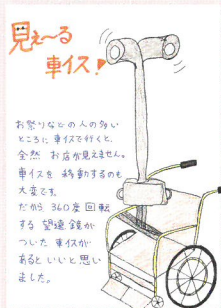 見え〜る
車イス!
お祭りなどの人の多い
ところに車イスで行くと、
全然お店が見えません。
車イスを移動するのも
大変です。
だから360度回転
する望遠鏡が
ついた車イスが
あるといいと思い
ました。